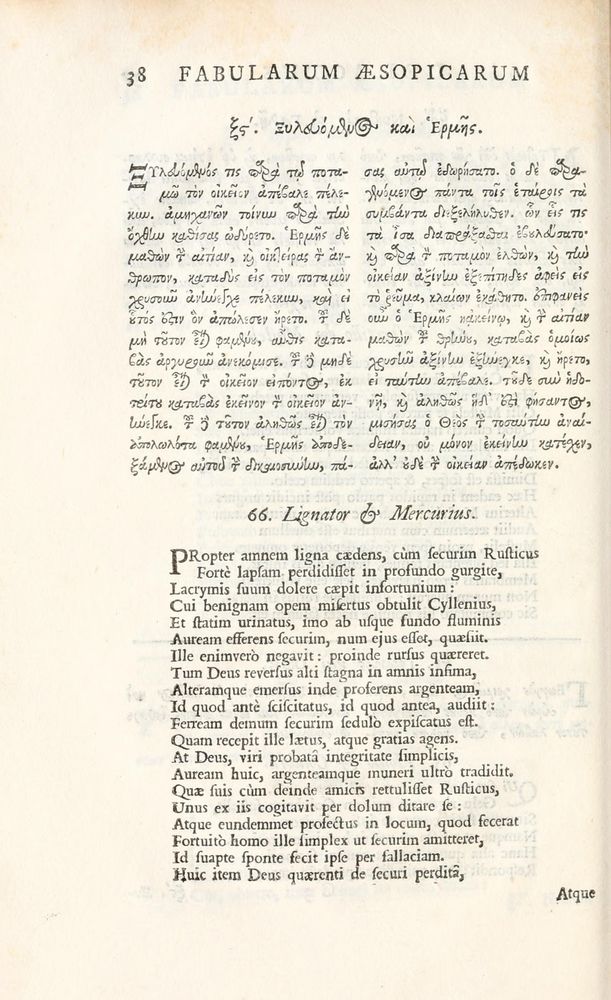 38 FABULARUM ÆSOPICARUM
ξϛ΄. Ξυλευόμενος καὶ Ἑρμῆς.
Ξυλευόμενός τις παρὰ τῷ ποτα-
μῷ τὸν οἰκεῖον ἀπέβαλε πέλε-
κυν. ἀμηχανῶν τοίνυν παρὰ τὴν
ὄχθην καθίσας ὠδύρετο. Ἑρμῆς δὲ
μαθὼν τὴν αἰτίαν, καὶ οἰκτείρας τὸν ἄν-
θρωπον, καταδὺς εἰς τὸν ποταμὸν
χρυσοῦν ἀνήνεγκε πέλεκυν, καὶ εἰ
οὗτός ἐστιν ὃν ἀπώλεσεν ἤρετο. τοῦ δὲ
μὴ τοῦτον εἶναι φαμένου, αὖθις κατα-
βὰς ἀργυροῦν ἀνεκόμισε. τοῦ δὲ μηδὲ
τοῦτον εἶναι τὸν οἰκεῖον εἰπόντος, ἐκ
τρίτου καταβὰς ἐκεῖνον τὸν οἰκεῖον ἀν-
ήνεγκε. τοῦ δὲ τοῦτον ἀληθῶς εἶναι τὸν
ἀπολωλότα φαμένου, Ἑρμῆς ἀποδε-
ξάμενος αὐτοῦ τὴν δικαιοσύνην, πά-
σας αὐτῷ ἐδωρήσατο. ὁ δὲ παρα-
γενόμενος πάντα τοῖς ἑταίροις τὰ
συμβάντα διεξελήλυθεν. ὧν εἷς τις
τὰ ἴσα διαπράξασθαι ἐβουλεύσατο·
καὶ παρὰ τὸν ποταμὸν ἐλθὼν, καὶ τὴν
οἰκείαν ἀξίνην ἐξεπίτηδες ἀφεὶς εἰς
τὸ ῥεῦμα, κλαίων ἐκάθητο. ἐπιφανεὶς
οὖν ὁ Ἑρμῆς κἀκείνῳ, καὶ τὴν αἰτίαν
μαθὼν τοῦ θρήνου, καταβὰς ὁμοίως
χρυσῆν ἀξίνην ἐξήνεγκε, καὶ ἤρετο,
εἰ ταύτην ἀπέβαλε. τοῦ δὲ σὺν ἡδο-
νῇ, καὶ ἀληθῶς ἥδ' ἐστὶ φήσαντος,
μισήσας ὁ Θεὸς τὴν τοσαύτην ἀναί-
δειαν, οὐ μόνον ἐκείνην κατέχεν,
ἀλλ' οὐδὲ τὴν οἰκείαν ἀπέδωκεν.
66. Lignator & Mercurius.
PRopter amnem ligna cædens, cùm securim Rusticus
Fortè lapsam perdidisset in profundo gurgite,
Lacrymis suum dolere cæpit infortunium:
Cui benignam opem misertus obtulit Cyllenius,
Et statim urinatus, imo ab usque fundo fluminis
Auream efferens securim, num ejus esset, quæsiit.
Ille enimverò negavit: proinde rursus quæreret.
Tum Deus reversus alti stagna in amnis infima,
Alteramque emersus inde proferens argenteam,
Id quod antè sciscitatus, id quod antea, audiit:
Ferream demum securim sedulò expiscatus est.
Quam recepit ille lætus, atque gratias agens.
At Deus, viri probatâ integritate simplicis,
Auream huic, argenteamque muneri ultrò tradidit.
Quæ suis cùm deinde amicis rettulisset Rusticus,
Unus ex iis cogitavit per dolum ditare se:
Atque eundemmet profectus in locum, quod fecerat
Fortuitò homo ille simplex ut securim amitteret,
Id suapte sponte fecit ipse per fallaciam.
Huic item Deus quærenti de securi perditâ,
Atque